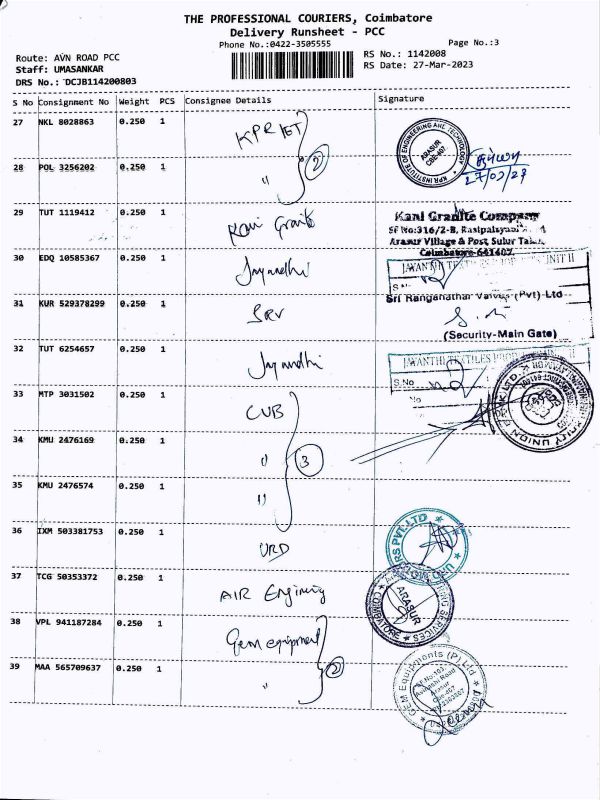 THE PROFESSIONAL COURIERS, Coimbatore
Delivery Runsheet - PCC
Phone No.:0422-3505555
Page No.:3
Route: AVN ROAD PCC
RS No.: 1142008
Staff: UMASANKAR
RS Date: 27-Mar-2023
DRS No.: DCJB114200803
S No Consignment No Weight PCS Consignee Details Signature
27 NKL 8028863 0.250 1 KPRIET
KPR INSTITUTE OF ENGINEERING AND TECHNOLOGY
ARASUR
CBE-407
27/03/23
28 POL 3256202 0.250 1 "
2
29 TUT 1119412 0.250 1 Kani Granite
Kani Granite Company
SF No:316/2-B, Rasipalayam
Arasur Village & Post, Sulur Taluk
Coimbatore-641407.
30 EDQ 10585367 0.250 1 Jayandhi
S.No
31 KUR 529378299 0.250 1 SRV
Sri Ranganathar Valves (Pvt) Ltd
(Security-Main Gate)
32 TUT 6254657 0.250 1 Jayandhi
JAYANTHI TEXTILES PROD UNIT II
S.No
No
33 MTP 3031502 0.250 1 CUB
34 KMU 2476169 0.250 1 "
3
35 KMU 2476574 0.250 1 "
36 IXM 503381753 0.250 1 URD
37 TCG 50353372 0.250 1 AIR Enginerg
ARASUR
38 VPL 941187284 0.250 1 Gem equipment
39 MAA 565709637 0.250 1 "
2
GEM Equipments (P) Ltd
Arasur